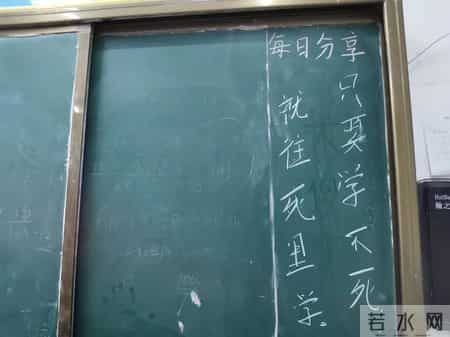 每日分享
只要学不死
就往死里学。
若水网